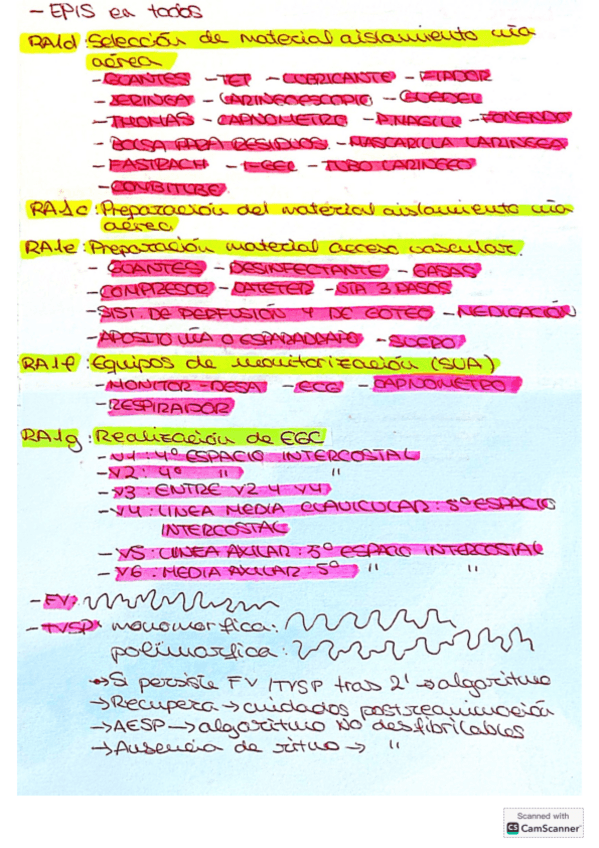 - EPIS en todos
RA1d: Selección de material aislamiento vía
aérea
- GUANTES - TET - LUBRICANTE - FIADOR
- JERINGA - LARINGOESCOPIO - GUEDEL
- THOMAS - CAPNOMETRO - PINAGILL - FONENDO
- BOLSA PARA RESIDUOS - MASCARILLA LARINGEA
- FASTRACH - IGEL - TUBO LARINGEO
- COMBITUBE
RA1c: Preparación del material aislamiento vía
aérea
RA1e: Preparación material acceso vascular.
- GUANTES - DESINFECTANTE - GASAS
- COMPRESOR - CATETER - 3 PASOS
- SIST. DE PERFUSIÓN Y DE GOTEO - MEDICACIÓN
- APOSITO VÍA O ESPARADRAPO - SUERO
RA1f: Equipos de monitorización (SVA)
- MONITOR - DESA - ECG - CAPNOMETRO
- RESPIRADOR
RA1g: Realización de EGC
- V1: 4º ESPACIO INTERCOSTAL
- V2: 4º " "
- V3: ENTRE V2 Y V4
- V4: LINEA MEDIA CLAVICULAR: 5º ESPACIO
INTERCOSTAL
- V5: LINEA AXILAR: 5º ESPACIO INTERCOSTAL
- V6: MEDIA AXILAR: 5º " "
- FV:
- TVSP: monomorfica:
polimorfica:
→ Si persiste FV/TVSP tras 2' → algoritmo
→ Recupera → cuidados postreanimación
→ AESP → algoritmo NO desfibrilables
→ Ausencia de ritmo → "
Scanned with
CS CamScanner